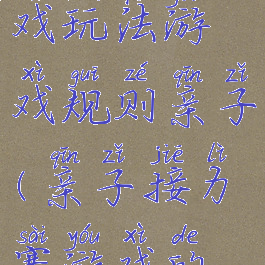 戏玩法游
xì guī zé qīn zǐ
戏规则亲子
qīn zǐ jiē lì
(亲子接力
sài yóu xì de
赛游戏的